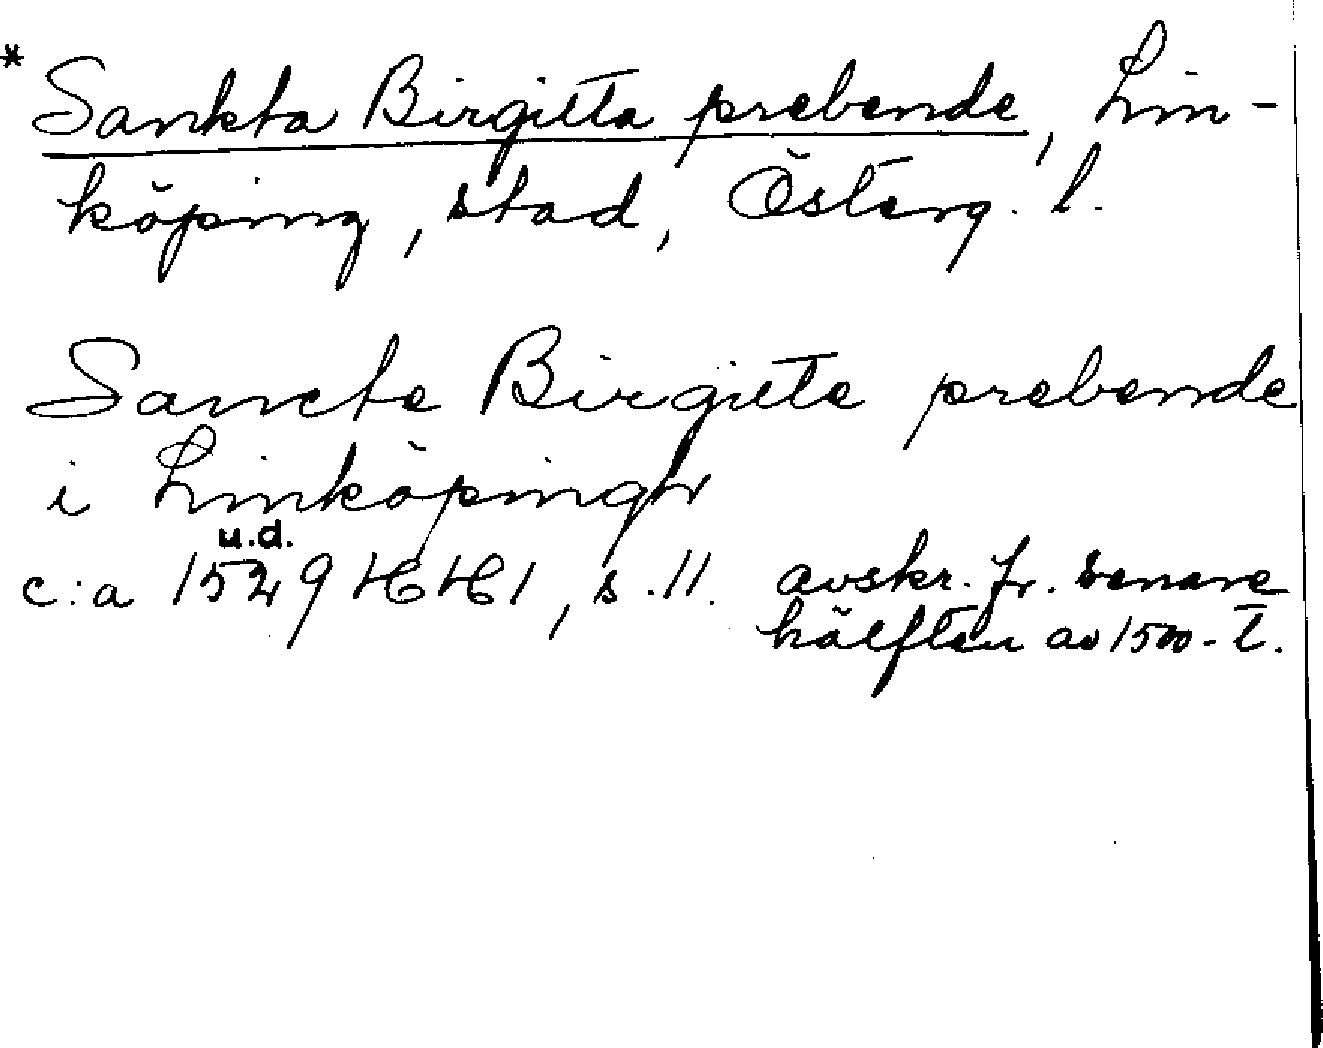 * Sankta Birgitta prebende, Lin-
köping, stad, Österg. l.
Sancte Birgitte prebende
i Linköpingh
u.d.
c:a 1529 HH1, s. 11. avskr. fr. senare
hälften av 1500-t.